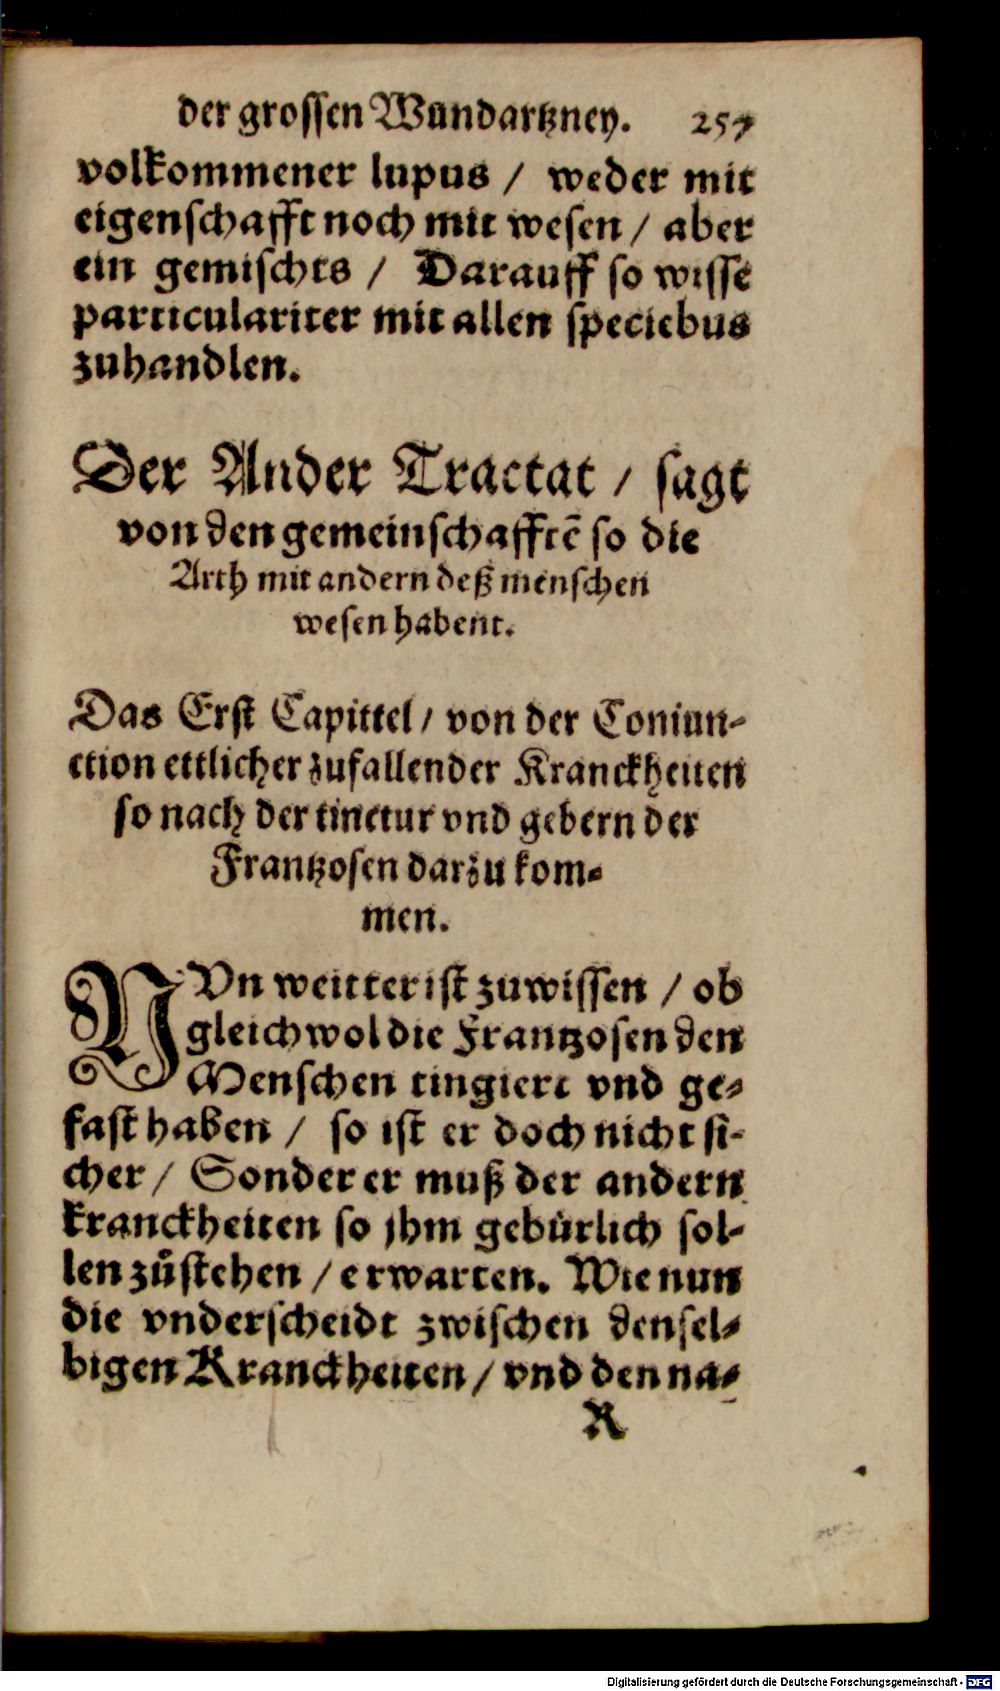 der grossen Wundartzney. 257
volkommener lupus / weder mit
eigenschafft noch mit wesen / aber
ein gemischts / Darauff so wisse
particulariter mit allen speciebus
zuhandlen.
Der Ander Tractat / sagt
von den gemeinschafftē so die
Arth mit andern deß menschen
wesen habent.
Das Erst Capittel / von der Coniun-
ction ettlicher zufallender Kranckheiten
so nach der tinctur vnd gebern der
Frantzosen darzu kom-
men.
NVn weitter ist zuwissen / ob
gleichwol die Frantzosen den
Menschen tingiert vnd ge-
fast haben / so ist er doch nicht si-
cher / Sonder er muß der andern
kranckheiten so jhm gebürlich sol-
len zůstehen / erwarten. Wie nun
die vnderscheidt zwischen densel-
bigen Kranckheiten / vnd den na-
R
Digitalisierung gefördert durch die Deutsche Forschungsgemeinschaft - DFG